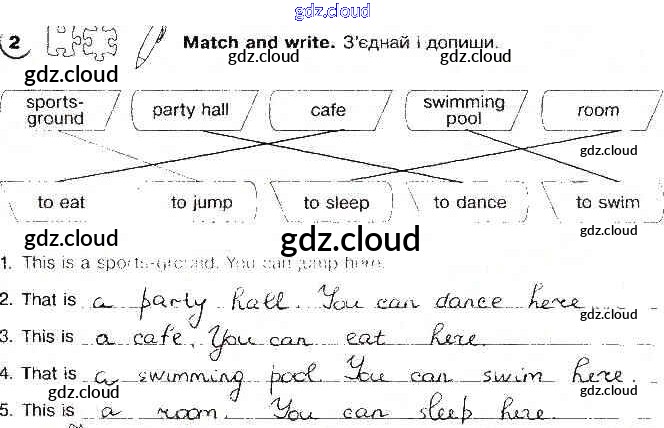 gdz.cloud
2 Match and write. З'єднай і допиши.
gdz.cloud gdz.cloud gdz.cloud
sports-ground party hall cafe swimming pool room
gdz.cloud
to eat to jump to sleep to dance to swim
gdz.cloud gdz.cloud gdz.cloud
1. This is a sports-ground. You can jump here.
2. That is a party hall. You can dance here
gdz.cloud
3. This is a cafe. You can eat here.
4. That is a swimming pool You can swim here.
gdz.cloud gdz.cloud
5. This is a room. You can sleep here.
gdz.cloud